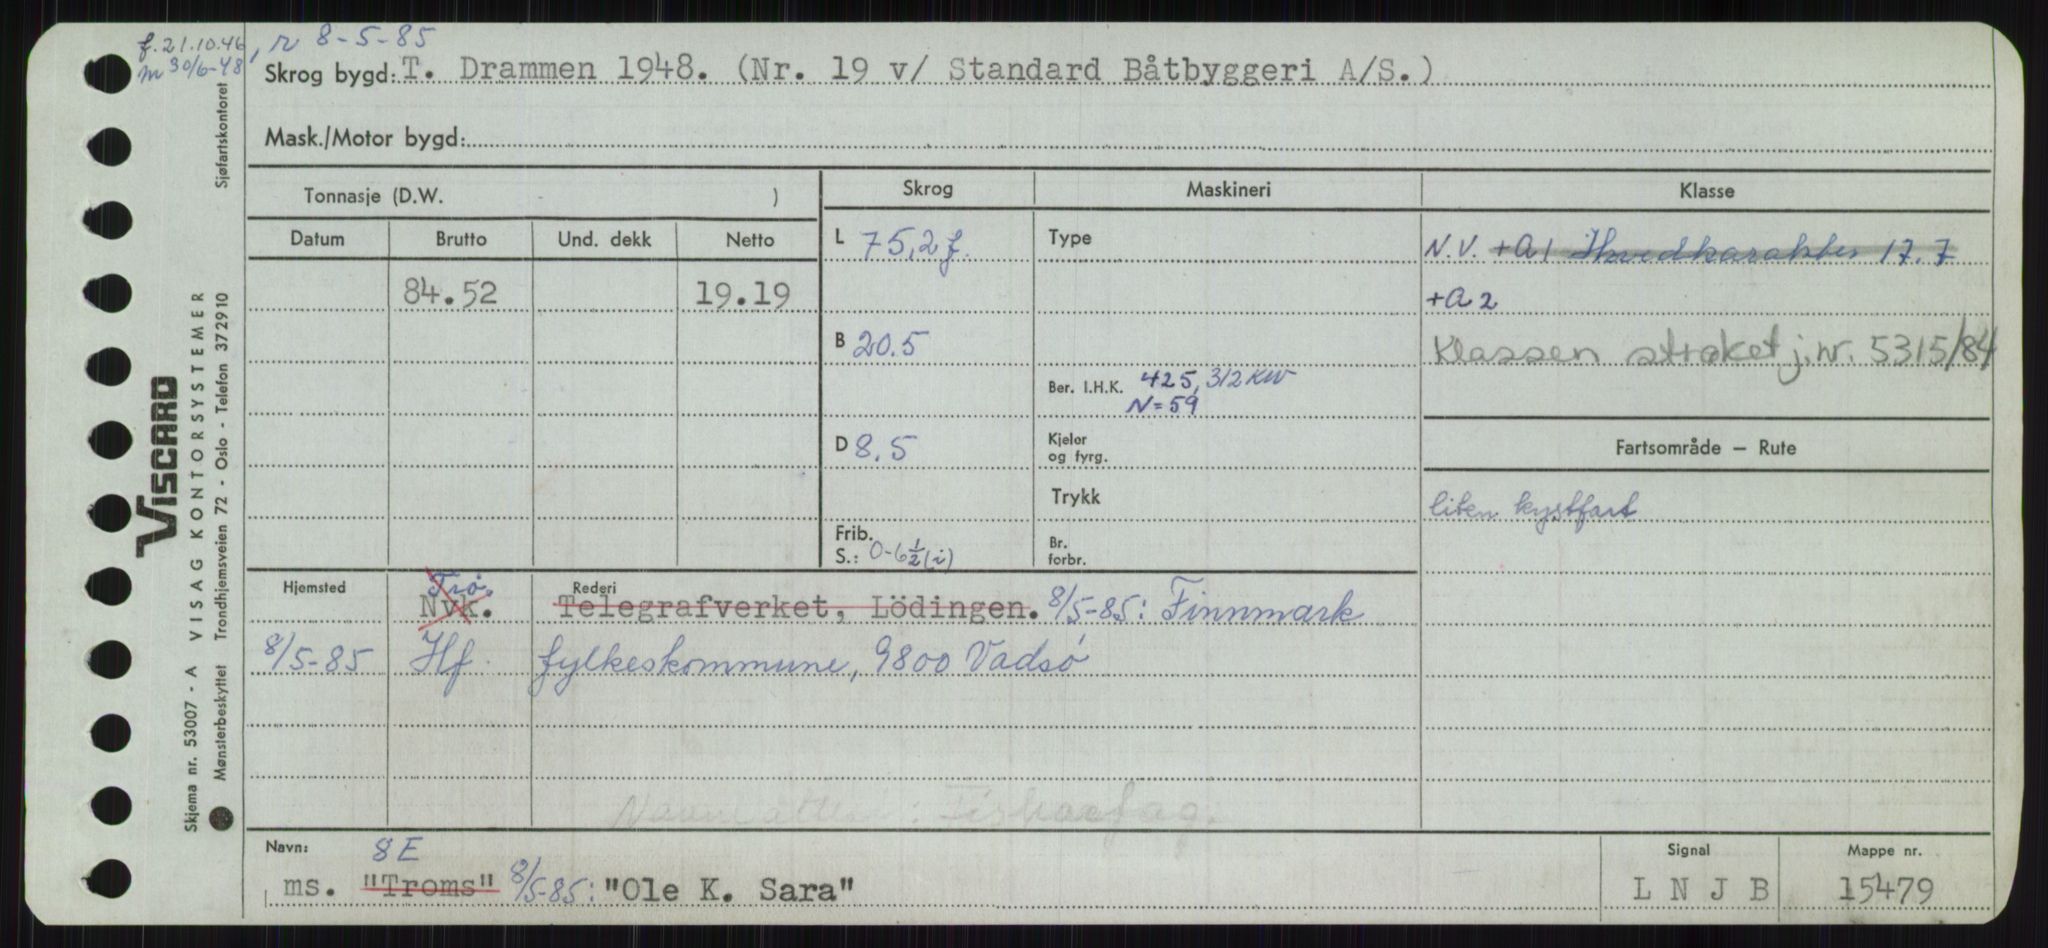 f. 21.10.46, r 8-5-85
m 30/6-48
Skrog bygd: T. Drammen 1948. (Nr. 19 v/ Standard Båtbyggeri A/S.)
Mask./Motor bygd:
Tonnasje (D.W. )
Skrog Maskineri Klasse
Datum Brutto Und. dekk Netto
84.52 19.19
L 75,2 f.
B 20.5
D 8,5
Frib.
S.: 0-6 1/2 (i)
Type
Ber. I.H.K. 425, 312 KW
N=59
Kjeler
og fyrg.
Trykk
Br.
forbr.
N.V. +A1 17.7
+A2
Klassen strøket j.nr. 5315/84
Fartsområde — Rute
liten kystfart
Hjemsted Rederi
Trø.
Nvk. Telegrafverket, Lödingen. 8/5-85: Finnmark
8/5-85 Hf. fylkeskommune, 9800 Vadsø
Fiskarfag.
Navn: 8E
ms. "Troms" 8/5-85: "Ole K. Sara"
Signal
L N J B
Mappe nr.
15479
Skjema nr. 53007 - A VISAG KONTORSYSTEMER
VISCARD
Mønsterbeskyttet Trondhjemsveien 72 - Oslo - Telefon 372910 Sjøfartskontoret